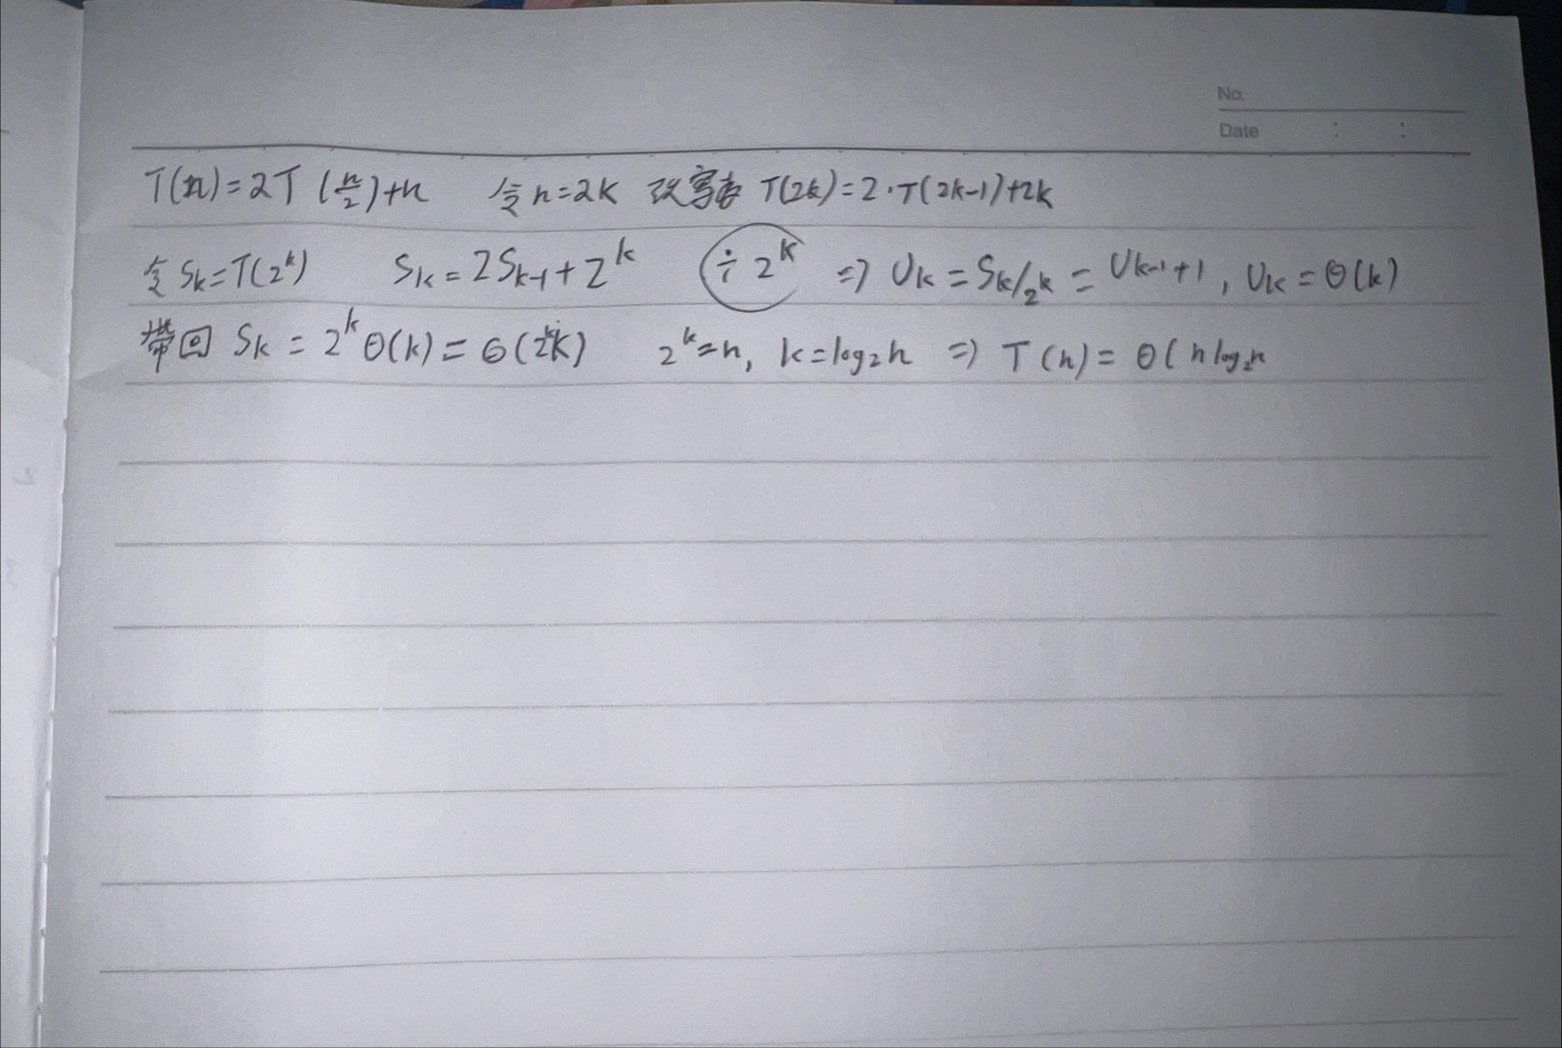 No.
Date : :
T(n)=2T(n/2)+n 令n=2k 改寫為 T(2k)=2·T(2k-1)+2k
令Sk=T(2^k) Sk=2Sk-1+2^k ÷2^k => Uk=Sk/2^k=Uk-1+1, Uk=Θ(k)
帶回 Sk=2^kΘ(k)=Θ(2^kk) 2^k=n, k=log₂n => T(n)=Θ(nlog₂n